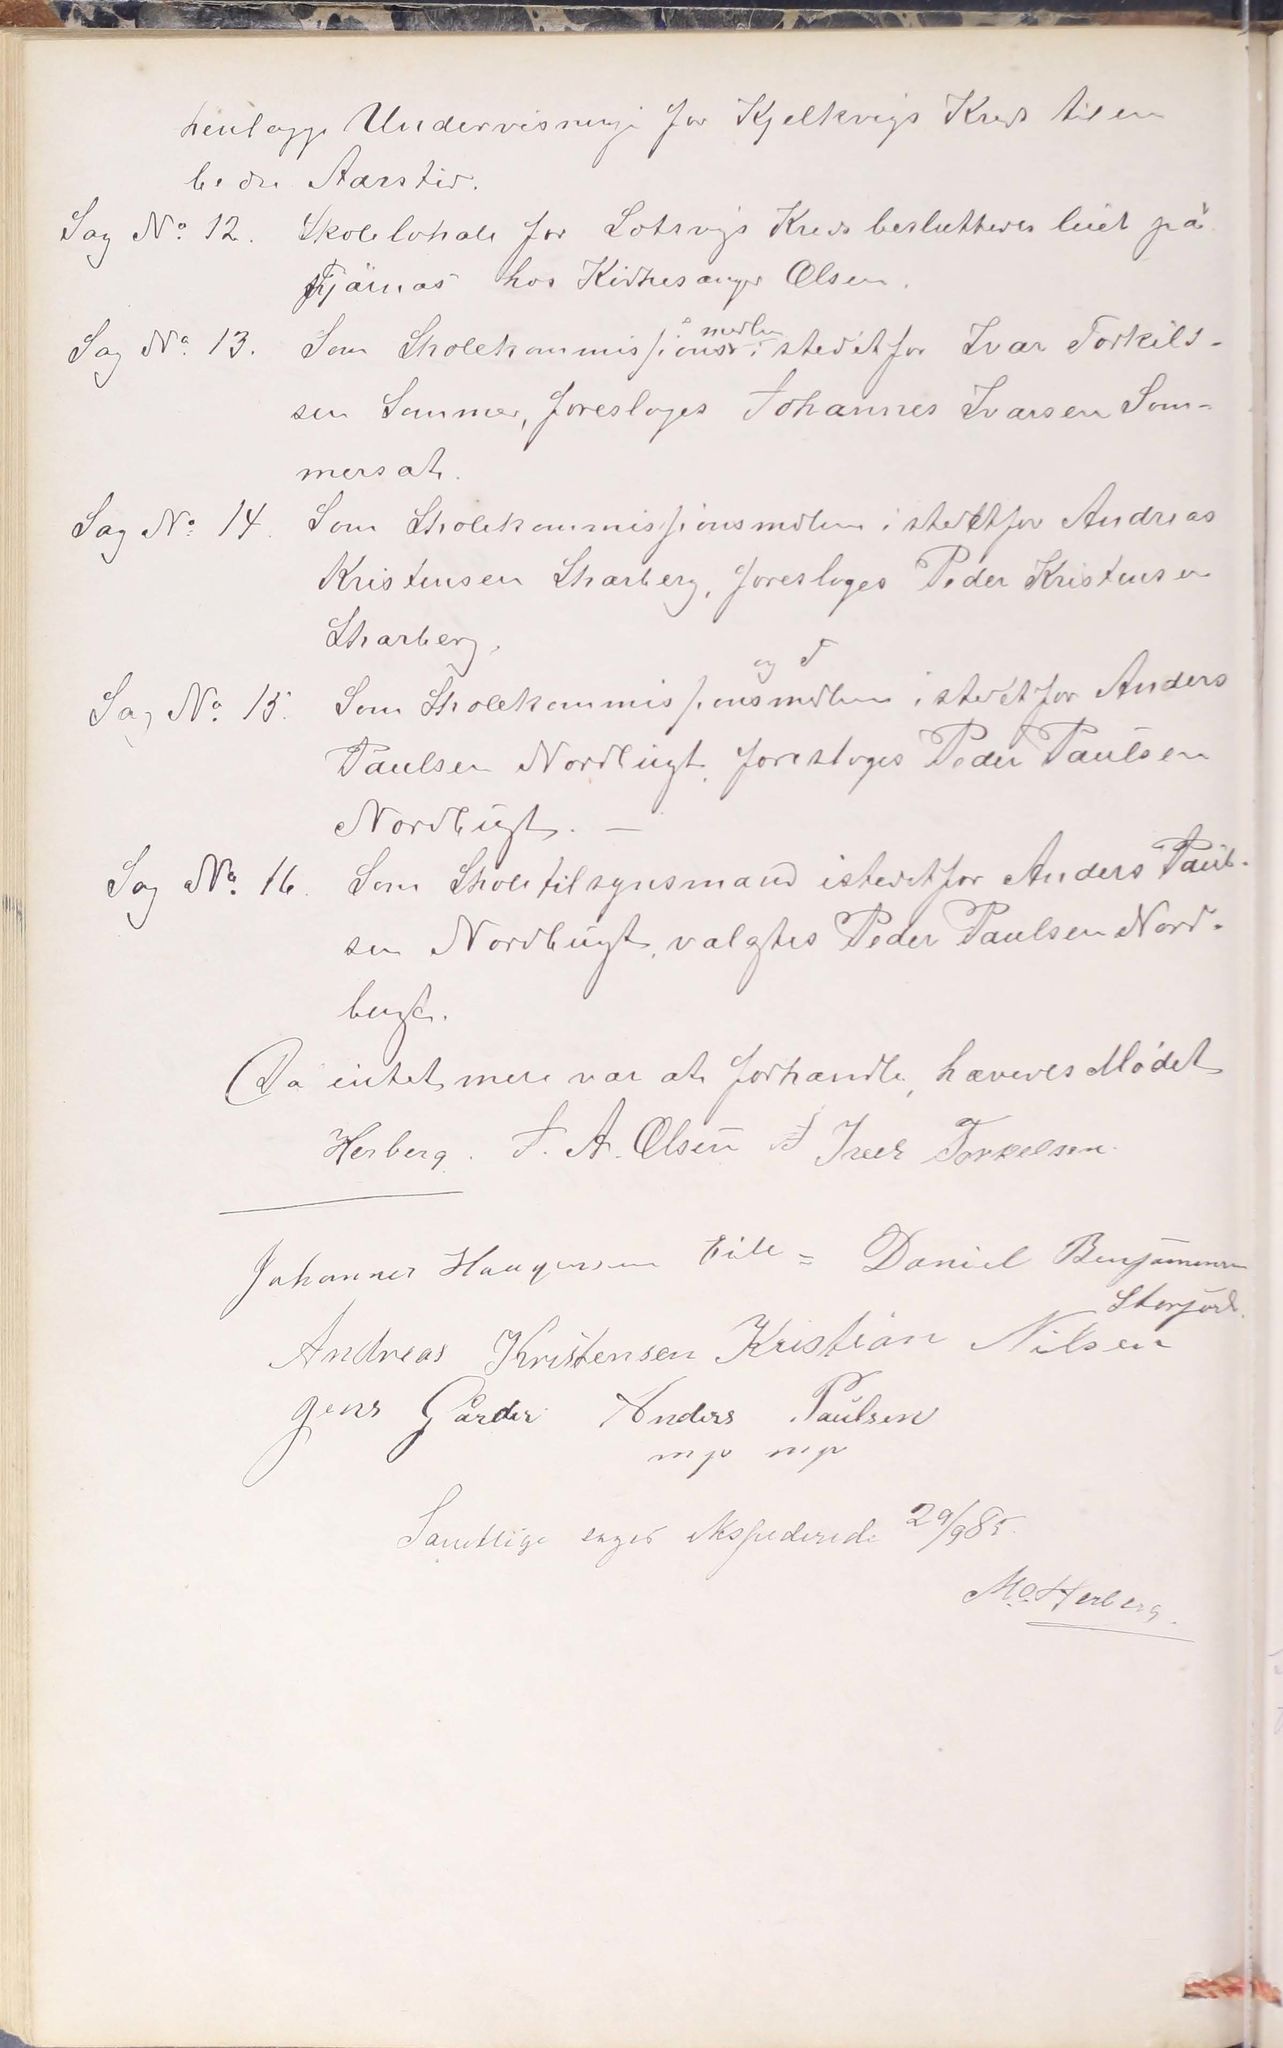 henlægge Undervisninge for Kjelkvigs Kreds til en
bedre Aarstid.
Sag No. 12. Skolelokale for Lotsvigs Kreds besluttedes leiet på
Fjärnas hos Kirkesanger Olsen.
medlem
Sag No. 13. Som Skolekommissions i stedet for Ivar Torkild-
sen Sommer, foresloges Johannes Ivarsen Som-
mersæt.
Sag No. 14. Som Skolekommissionsmdlem i stedet for Andreas
Kristensen Skarberg, foresloges Peder Kristensen
Skarberg.
og T
Sag No. 15. Som Skolekommissionsmdlem i stedet for Anders
Paulsen Nordbugt, foresloges Peder Paulsen
Nordbugt. —
Sag No. 16. Som Skoletilsynsmand istedet for Anders Paul-
sen Nordbugt, valgtes Peder Paulsen Nord-
bugt.
Da intet mere var at forhandle, hævedes Mödet
Herberg. J. A. Olsen Iver Torkelsen.
Johannes Haagensen Eide = Daniel Benjaminsen
Storjord.
Andreas Kristensen Kristian Nilsen
Jens Gårder Anders Paulsen
mp mp
Samtlige sager ekspederede 29/9 85.
Mo. Herberg.